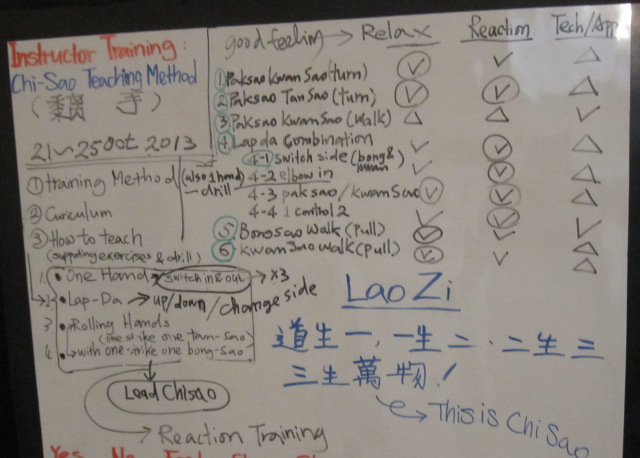 Instructor Training:
Chi-Sao Teaching Method
( 手 )
21~25 Oct 2013
① Training Method (also 1 hand)
— drill
② Curculum
③ How to teach
(supporting exercises & drill)
1. • One Hand → switch in & out → x3
• Lap-Da → up/down/change side
3. • Rolling Hands
(one strike one tan-sao)
4. • with one strike one bong-sao
Lead Chisao
→ Reaction Training
good feeling → Relax Reaction Tech/App
① Paksao Kwan Sao (turn) ✓ ✓ △
② Paksao Tan Sao (turn) ✓ ✓ △
③ Paksao Kwan Sao (walk) △ △ ✓
④ Lap da Combination ✓ ✓ △
4-1 switch side (bong &
4-2 elbow in
4-3 paksao/kwan Sao
4-4 1 control 2
⑤ Bongsao Walk (pull)
⑥ Kwan Sao walk (pull)
Lao Zi
道生一,一生二.二生三
三生萬物!
This is Chi Sao
Yes No